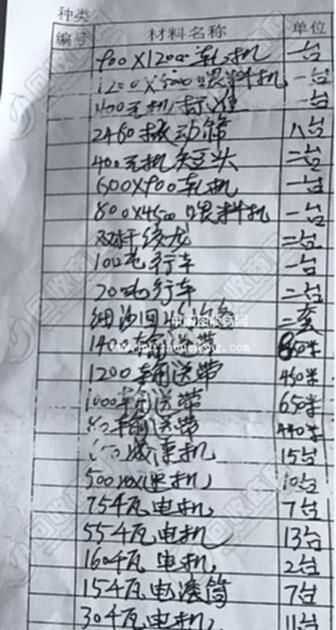 种类
编号 材料名称 单位
900X1200轧机 一台
1200X5000喂料机 一台
400瓦机标准 一台
2460振动筛 八台
400瓦机短头 二台
600X900轧机 一台
800X4500喂料机 一台
双杆绞龙 二台
10吨行车 一台
20吨行车 二台
细沙回收设备 二套
1400输送带 850米
1200输送带 450米
1000输送带 650米
输送带 440米
减速机 15台
500减速机 10台
75千瓦电机 7台
55千瓦电机 13台
160千瓦电机 2台
15千瓦电滚筒 7台
30千瓦电机 11台